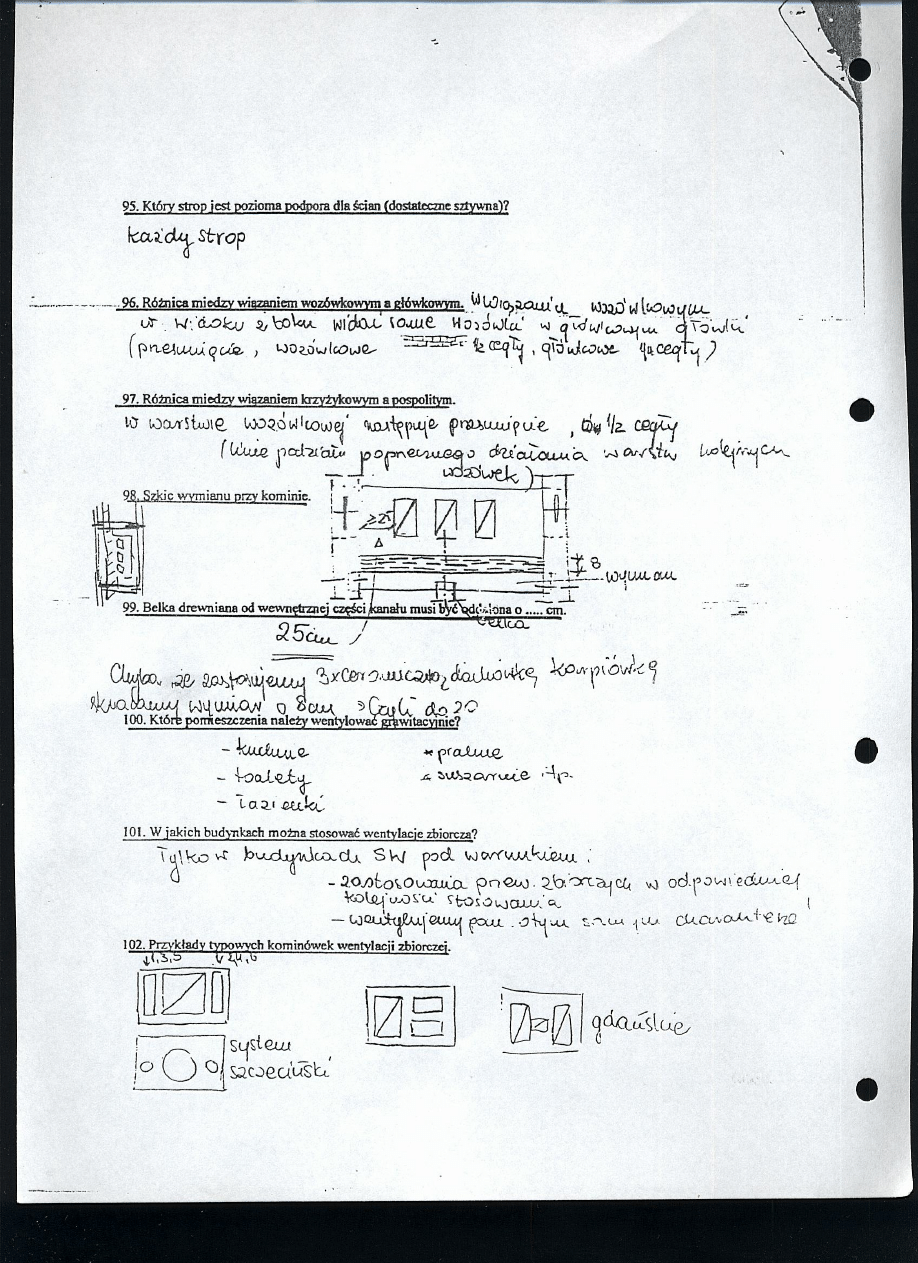 95. Który strop jest pozioma podpora dla ścian (dostateczne sztywna)?
każdy strop
96. Różnica miedzy wiązaniem wozówkowym a główkowym. W wiązaniu wozówkowym
w widoku z boku widać same wozówki w główkowym główki
(przesunięcie, wozówkowe ½ cegły, główkowe ¼ cegły)
97. Różnica miedzy wiązaniem krzyżykowym a pospolitym.
w warstwie wozówkowej następuje przesunięcie, o ½ cegły
(linie podziału poprzecznego działania warstw kolejnych
wozówek)
98. Szkic wymianu przy kominie.
≥25
8
wymian
99. Belka drewniana od wewnętrznej części kanału musi być oddalona o ..... cm.
belka
25cm
Chyba, że zastosujemy 3x ceramiczną dachówkę karpiówkę
skracamy wymiar o 8cm czyli do 20
100. Które pomieszczenia należy wentylować grawitacyjnie?
- kuchnie
- pralnie
- toalety
- suszarnie itp.
- łazienki
101. W jakich budynkach można stosować wentylacje zbiorcza?
Tylko w budynkach SW pod warunkiem:
- zastosowania przew. zbiorczych w odpowiedniej
kolejności stosowania
- wentylujemy pom. o tym samym charakterze!
102. Przykłady typowych kominówek wentylacji zbiorczej.
1,3,5 2,4,6
gdańskie
system
szczeciński